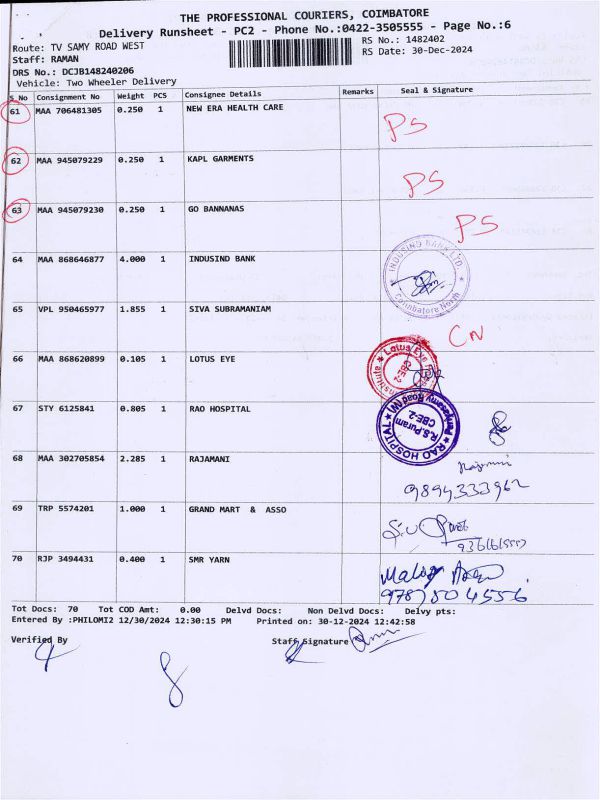 THE PROFESSIONAL COURIERS, COIMBATORE
Delivery Runsheet - PC2 - Phone No.:0422-3505555 - Page No.:6
Route: TV SAMY ROAD WEST
RS No.: 1482402
Staff: RAMAN
RS Date: 30-Dec-2024
DRS No.: DCJB148240206
Vehicle: Two Wheeler Delivery
S. No Consignment No Weight PCS Consignee Details Remarks Seal & Signature
61 MAA 706481305 0.250 1 NEW ERA HEALTH CARE PS
62 MAA 945079229 0.250 1 KAPL GARMENTS PS
63 MAA 945079230 0.250 1 GO BANNANAS PS
64 MAA 868646877 4.000 1 INDUSIND BANK
INDUSIND BANK LTD.
Coimbatore North
65 VPL 950465977 1.855 1 SIVA SUBRAMANIAM CN
66 MAA 868620899 0.105 1 LOTUS EYE
Lotus Eye
Institute
CBE-2
67 STY 6125841 0.805 1 RAO HOSPITAL
RAO HOSPITAL
Periyasamy Road (W)
R.S.Puram
CBE-2.
68 MAA 302705854 2.285 1 RAJAMANI
9894333962
69 TRP 5574201 1.000 1 GRAND MART & ASSO
70 RJP 3494431 0.400 1 SMR YARN
Tot Docs: 70 Tot COD Amt: 0.00 Delvd Docs: Non Delvd Docs: Delvy pts:
Entered By :PHILOMI2 12/30/2024 12:30:15 PM Printed on: 30-12-2024 12:42:58
Verified By Staff Signature